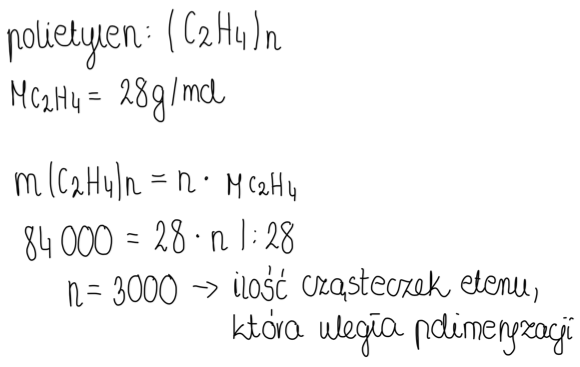 polietylen: (C₂H₄)n
MC₂H₄ = 28g/mol
m(C₂H₄)n = n · MC₂H₄
84 000 = 28 · n |: 28
n = 3000 → ilość cząsteczek etenu,
która uległa polimeryzacji